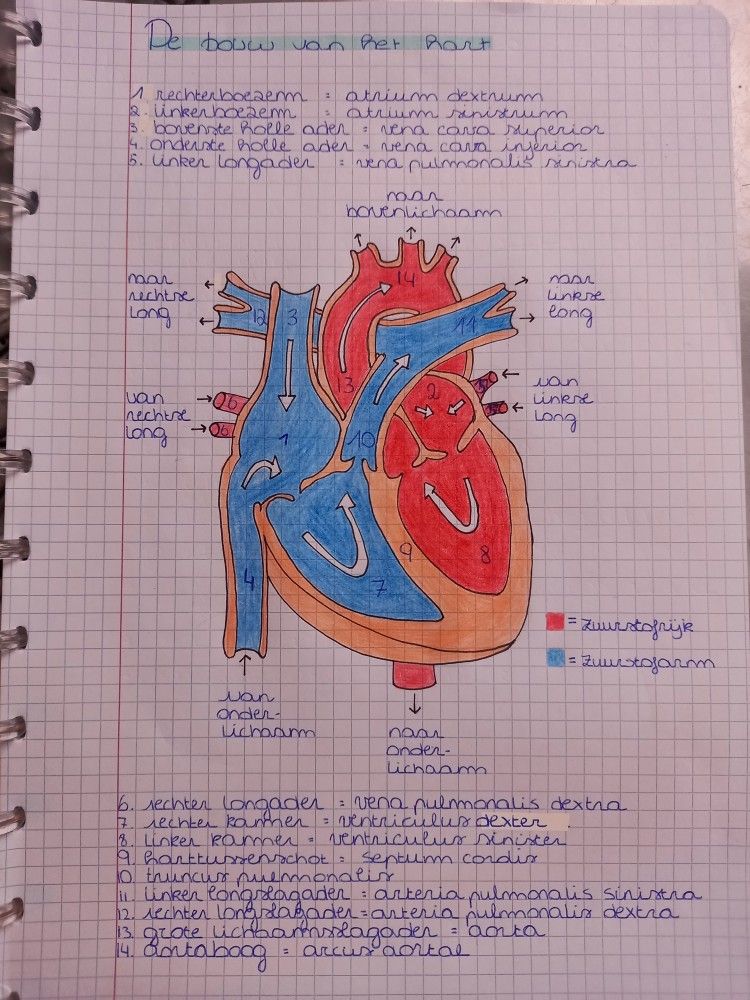 De bouw van het hart
1 rechterboezem = atrium dextrum
2. linkerboezem = atrium sinistrum
3. bovenste holle ader = vena cava superior
4. onderste holle ader = vena cava inferior
5. linker longader = vena pulmonalis sinistra
naar
bovenlichaam
14
naar
rechtse
long
12
3
11
naar
linkse
long
13
2
van
rechtse
long
6
6
van
linkse
long
1
10
9
8
4
7
= zuurstofrijk
= zuurstofarm
van
onder-
lichaam
naar
onder-
lichaam
6. rechter longader = vena pulmonalis dextra
7. rechter kamer = ventriculus dexter
8. linker kamer = ventriculus sinister
9. harttussenschot = septum cordis
10 truncus pulmonalis
11. linker longslagader = arteria pulmonalis sinistra
12. rechter longslagader = arteria pulmonalis dextra
13 grote lichaamsslagader = aorta
14. aortaboog = arcus aortae